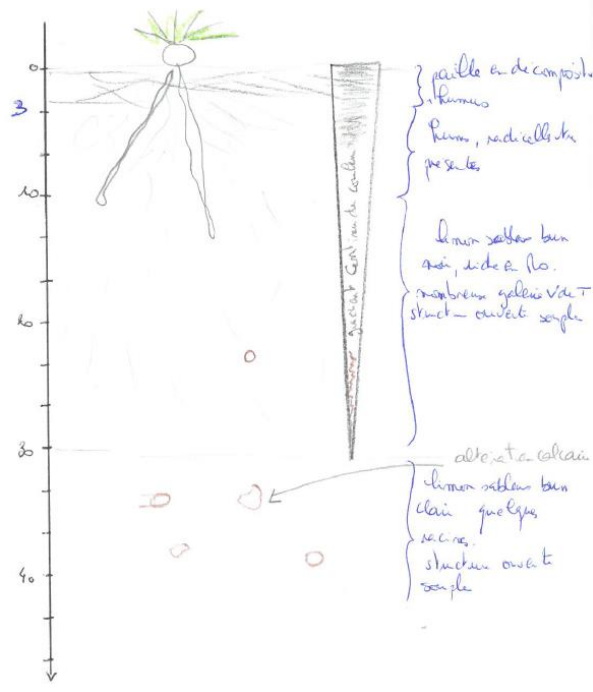 0
3
10
20
30
40
gradient continu de couleur
paille en décomposit.
+ humus
humus, radicelles très
présentes
limon sableux brun
noir, riche en Mo.
nombreuse galerie V de T
structure ouverte souple
altérat en calcaire
limon sableux brun
clair quelques
racines.
structure ouverte
souple